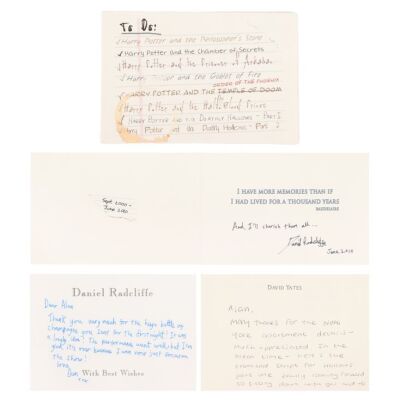 To Do:
✓ Harry Potter and the Philosopher's Stone
✓ Harry Potter and the Chamber of Secrets
✓ Harry Potter and the Prisoner of Azkaban
✓ Harry Potter and the Goblet of Fire
ORDER OF THE PHOENIX
✓ HARRY POTTER AND THE TEMPLE OF DOOM
✓ Harry Potter and the Half-Blood Prince
✓ HARRY POTTER AND THE DEATHLY HALLOWS - PART 1
Harry Potter and the Deathly Hallows - Part
Sept 2000 -
June 2010
I HAVE MORE MEMORIES THAN IF
I HAD LIVED FOR A THOUSAND YEARS
BAUDELAIRE
And I'll cherish them all...
Daniel Radcliffe
June 2010
Daniel Radcliffe
Dear Alan
Thank you very much for the huge bottle of
champagne you sent for the first night! It was
a lovely idea! The performance went well but I'm
glad it's over because I was very
the show!
Love,
Dan
xx
With Best Wishes
DAVID YATES
Alan,
MANY THANKS for the New
York
much appreciated. In the
mean time - here's the
script for
we're really looking forward
to